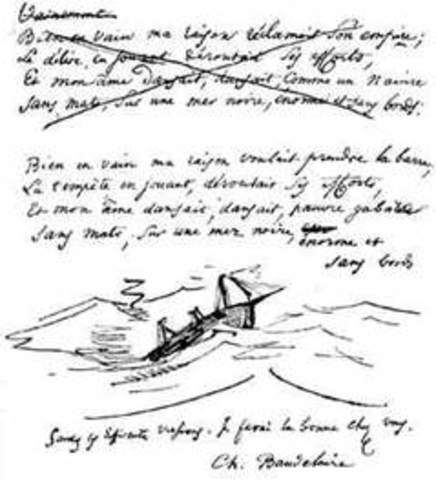 Vainement
Bien en vain ma raison réclamait son empire;
Le délire, en jouant déroutait ses efforts,
Et mon âme dansait, dansait, comme un navire
Sans mats, sur une mer noire, énorme et sans bords.
Bien en vain ma raison voulait prendre la barre,
La tempête en jouant, déroutait ses efforts,
Et mon âme dansait, dansait, pauvre gabare
Sans mats, sur une mer noire, énorme et
sans bords
Je ferai la bonne chez vous.
Ch. Baudelaire